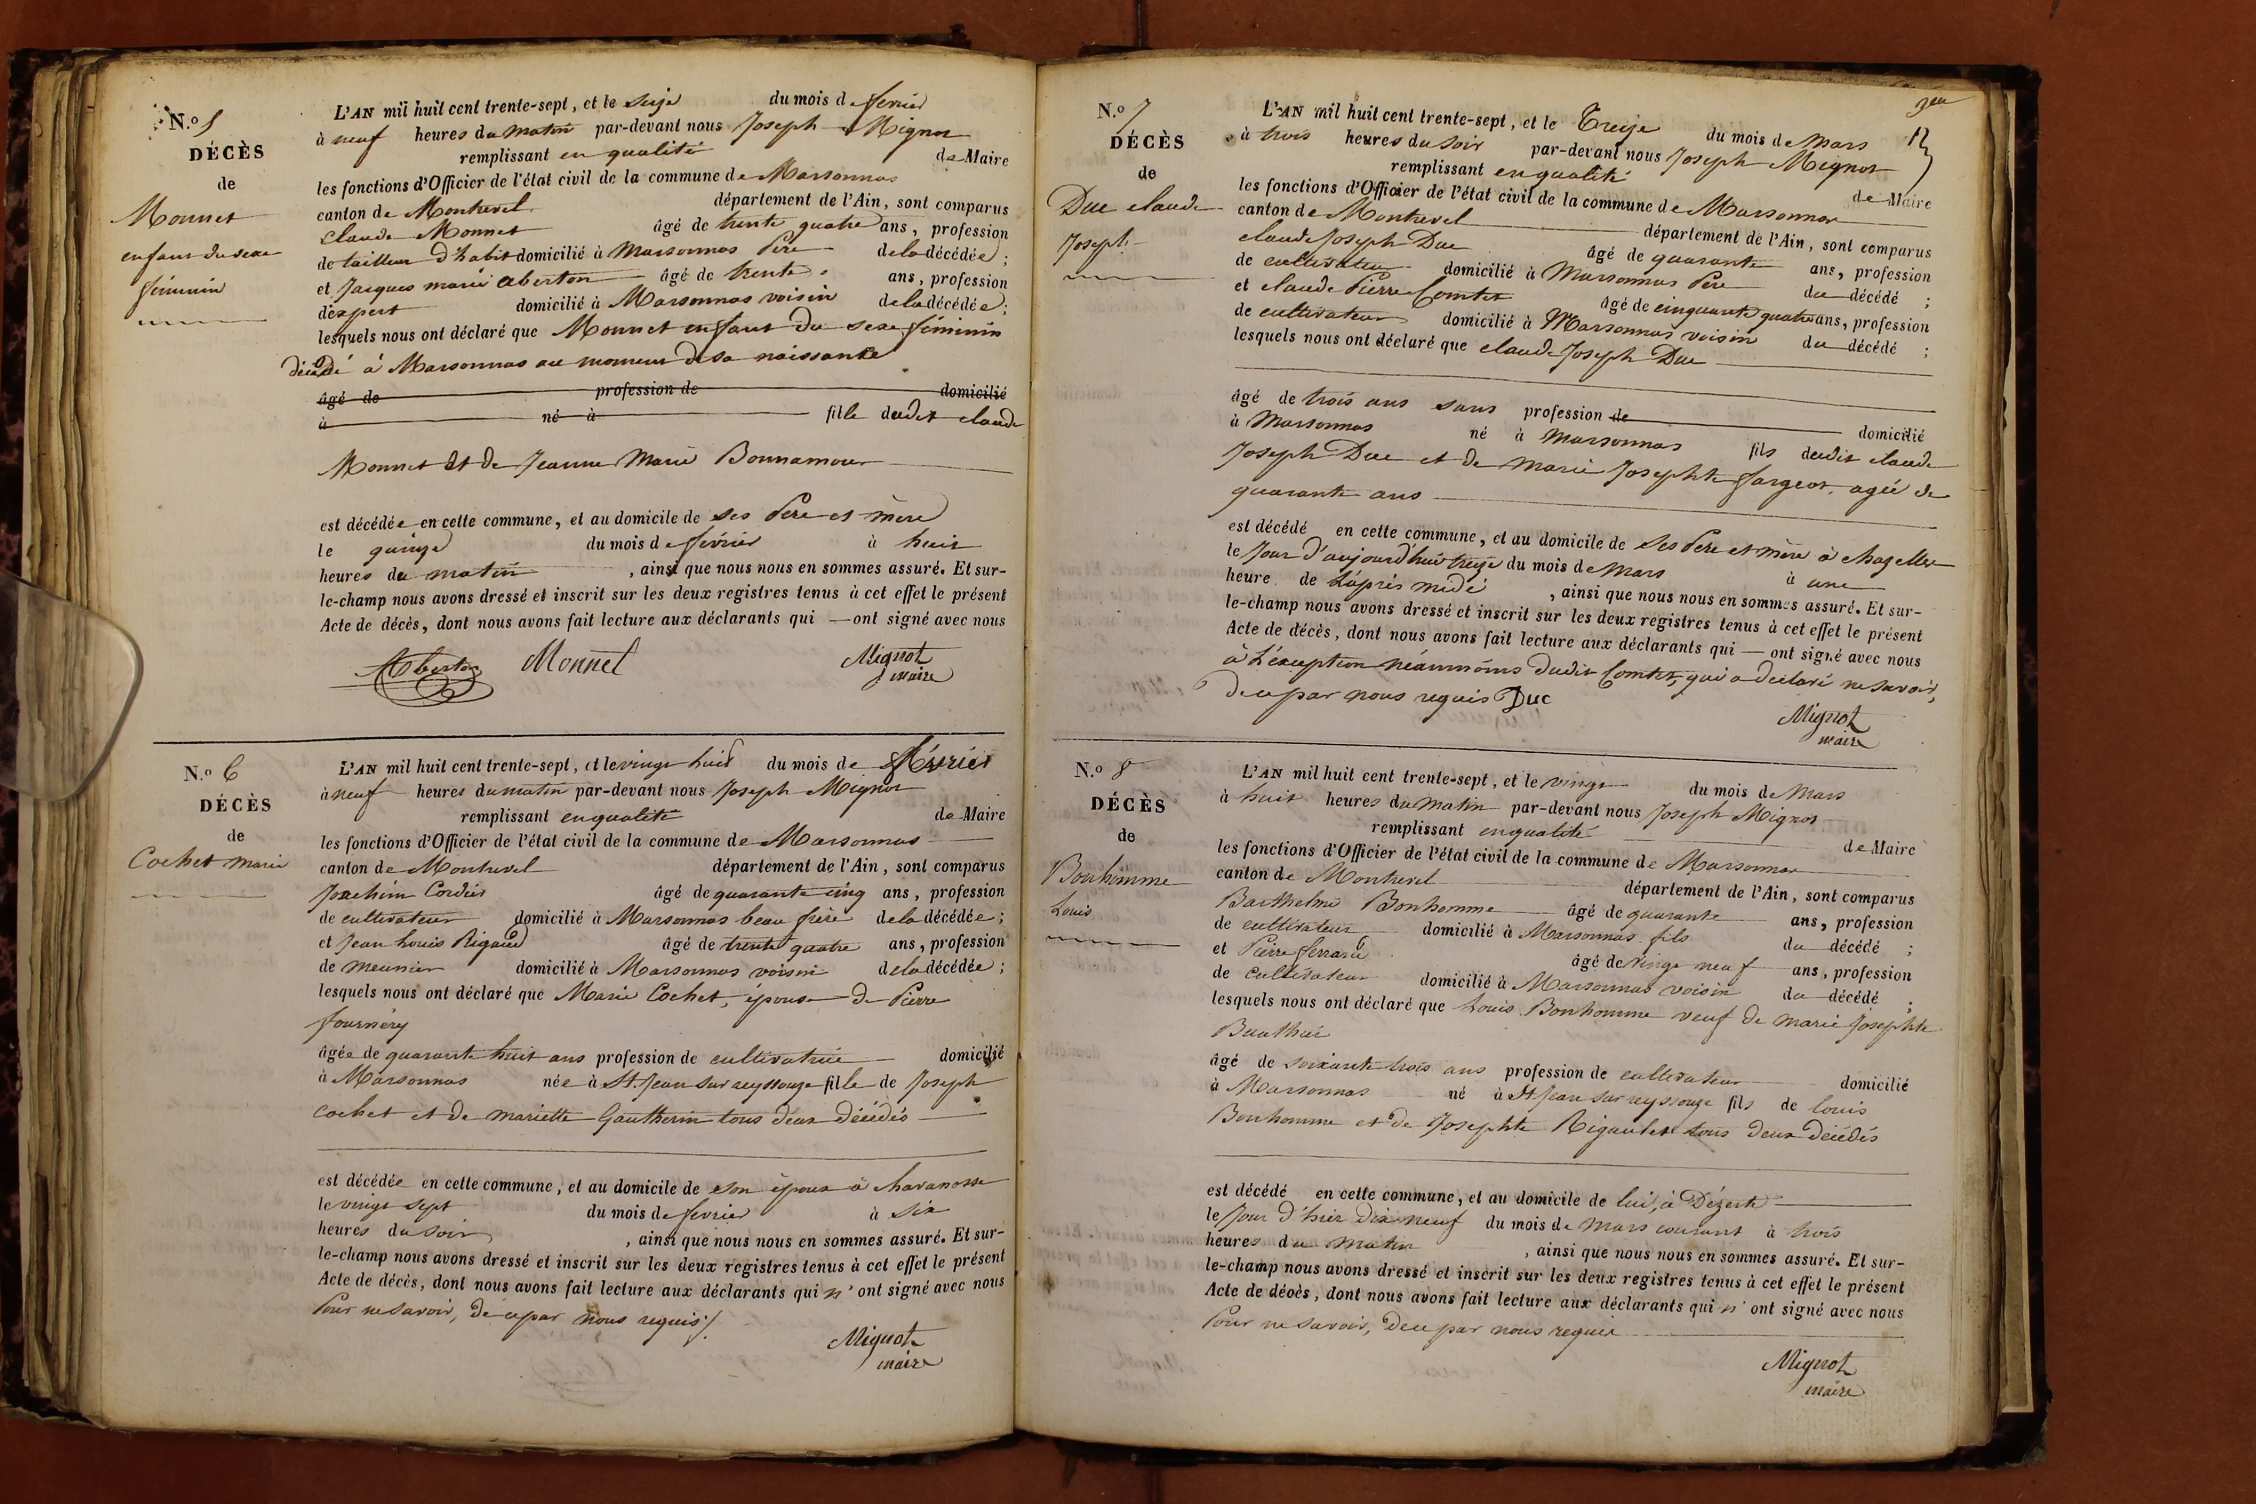 N.º 5
DÉCÈS
de
Monnet
enfant du sexe
féminin
L'AN mil huit cent trente-sept, et le seize du mois de fevrier
à neuf heures du matin par-devant nous Joseph Mignot
remplissant en qualité de Maire
les fonctions d'Officier de l'état civil de la commune de Marsonnas
canton de Montrevel département de l'Ain, sont comparus
Claude Monnet âgé de trente quatre ans, profession
de tailleur d'habit domicilié à Marsonnas Père de la décédée;
et Jacques marie aberton âgé de trente ans, profession
d'expert domicilié à Marsonnas voisin de la décédée;
lesquels nous ont déclaré que Monnet enfant du sexe féminin
décédé à Marsonnas au moment de sa naissance
âgé de profession de domicilié
à né à fille dudit claude
Monnet Et de Jeanne Marie Bonnamour
est décédée en cette commune, et au domicile de ses Pere et mère
le quinze du mois de février à huit
heures du matin, ainsi que nous nous en sommes assuré. Et sur-
le-champ nous avons dressé et inscrit sur les deux registres tenus à cet effet le présent
Acte de décès, dont nous avons fait lecture aux déclarants qui ont signé avec nous
Aberton Monnet Mignot
maire
N.º 6
DÉCÈS
de
Cochet marie
L'AN mil huit cent trente-sept, et le vingt huit du mois de Février
à neuf heures du matin par-devant nous Joseph Mignot
remplissant en qualité de Maire
les fonctions d'Officier de l'état civil de la commune de Marsonnas
canton de Montrevel département de l'Ain, sont comparus
Joachim Cordier âgé de quarante cinq ans, profession
de cultivateur domicilié à Marsonnas beau frère de la décédée;
et Jean Louis Rigaud âgé de trente quatre ans, profession
de meunier domicilié à Marsonnas voisin de la décédée;
lesquels nous ont déclaré que Marie Cochet, épouse de Pierre
fournery
âgée de quarante huit ans profession de cultivatrice domicilié
à Marsonnas née à St. Jean sur reyssouze fille de Joseph
Cochet et de mariette Gautherin tous deux décédés
est décédée en cette commune, et au domicile de son époux à chavanosse
le vingt sept du mois de fevrier à six
heures du soir, ainsi que nous nous en sommes assuré. Et sur-
le-champ nous avons dressé et inscrit sur les deux registres tenus à cet effet le présent
Acte de décès, dont nous avons fait lecture aux déclarants qui n'ont signé avec nous
Pour ne savoir, de ce par nous requis./.
Mignot
maire
N.º 7
DÉCÈS
de
Duc claude
Joseph
L'AN mil huit cent trente-sept, et le Treize du mois de Mars
à trois heures du soir par-devant nous Joseph Mignot
remplissant en qualité de Maire
les fonctions d'Officier de l'état civil de la commune de Marsonnas
canton de Montrevel département de l'Ain, sont comparus
claude Joseph Duc âgé de quarante ans, profession
de cultivateur domicilié à Marsonnas Père du décédé;
et claude Pierre Comtet âgé de cinquante quatre ans, profession
de cultivateur domicilié à Marsonnas voisin du décédé;
lesquels nous ont déclaré que claude Joseph Duc
âgé de trois ans sans profession de domicilié
à Marsonnas né à Marsonnas fils dudit claude
Joseph Duc et de marie Josephte fargeot, agée de
quarante ans
est décédé en cette commune, et au domicile de ses Pere et mère à chazelles
le Jour d'aujourd'hui treize du mois de Mars à une
heure de L'aprés midi, ainsi que nous nous en sommes assuré. Et sur-
le-champ nous avons dressé et inscrit sur les deux registres tenus à cet effet le présent
Acte de décès, dont nous avons fait lecture aux déclarants qui ont signé avec nous
à L'exception néanmoins dudit Comtet, qui a déclaré ne savoir,
de ce par nous requis Duc
Mignot
maire
N.º 8
DÉCÈS
de
Bonhomme
Louis
L'AN mil huit cent trente-sept, et le vingt du mois de Mars
à huit heures du matin par-devant nous Joseph Mignot
remplissant en qualité de Maire
les fonctions d'Officier de l'état civil de la commune de Marsonnas
canton de Montrevel département de l'Ain, sont comparus
Barthelmi Bonhomme âgé de quarante ans, profession
de cultivateur domicilié à Marsonnas fils du décédé;
et Pierre ferrand âgé de vingt neuf ans, profession
de cultivateur domicilié à Marsonnas voisin du décédé;
lesquels nous ont déclaré que Louis Bonhomme veuf de marie Josephte
âgé de soixante trois ans profession de cultivateur domicilié
à Marsonnas né à St Jean sur reyssouze fils de Louis
Bonhomme et de Josephte Rigaudet tous deux décédés
est décédé en cette commune, et au domicile de lui, à Dézerte
le Jour d'hier Dix neuf du mois de Mars courant à trois
heures du matin, ainsi que nous nous en sommes assuré. Et sur-
le-champ nous avons dressé et inscrit sur les deux registres tenus à cet effet le présent
Acte de décès, dont nous avons fait lecture aux déclarants qui n'ont signé avec nous
Pour ne savoir, de ce par nous requis
Mignot
maire